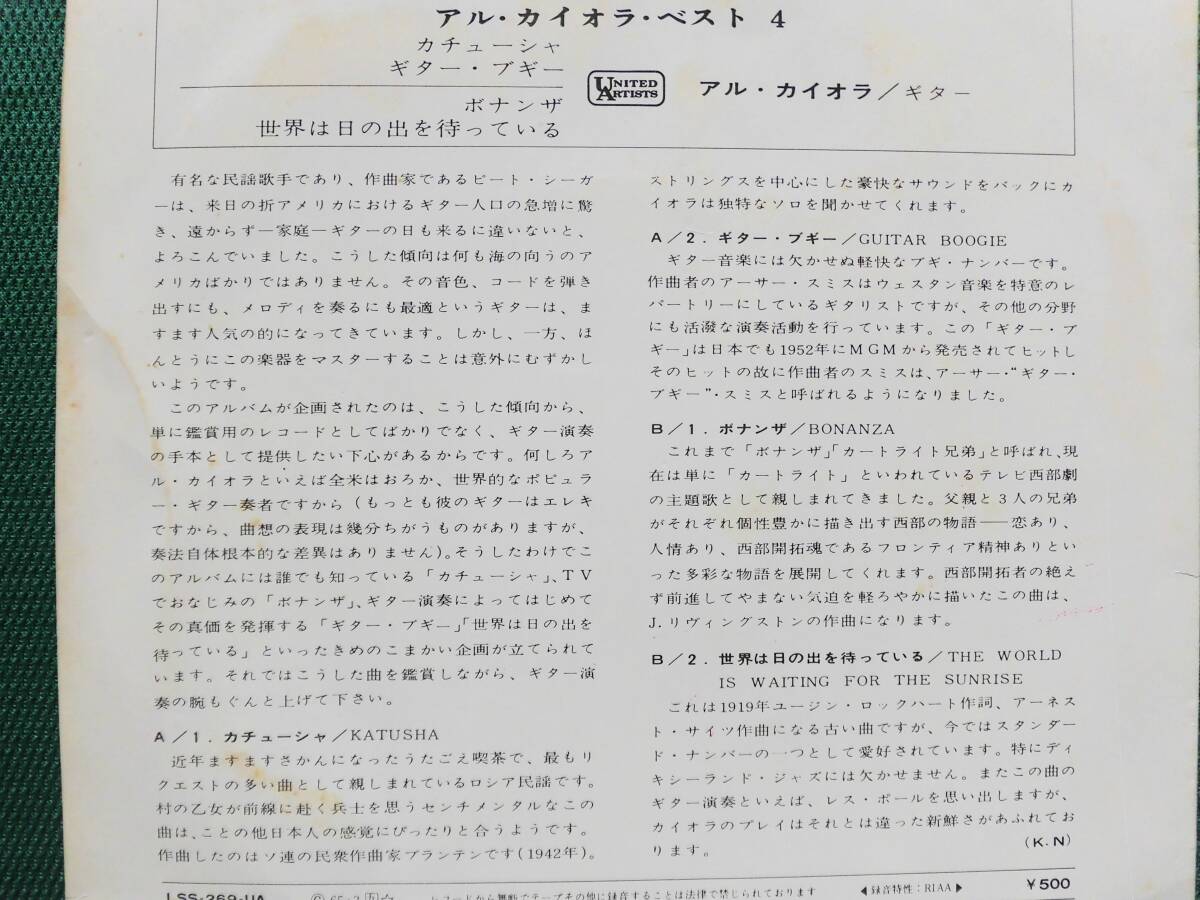 アル・カイオラ・ベスト 4
カチューシャ
ギター・ブギー
ボナンザ
世界は日の出を待っている
UNITED
ARTISTS
アル・カイオラ/ギター
有名な民謡歌手であり、作曲家であるピート・シーガ
ーは、来日の折アメリカにおけるギター人口の急増に驚
き、遠からず一家庭一ギターの日も来るに違いないと、
よろこんでいました。こうした傾向は何も海の向うのア
メリカばかりではありません。その音色、コードを弾き
出すにも、メロディを奏るにも最適というギターは、ま
すます人気の的になってきています。しかし、一方、ほ
んとうにこの楽器をマスターすることは意外にむずかし
いようです。
このアルバムが企画されたのは、こうした傾向から、
単に鑑賞用のレコードとしてばかりでなく、ギター演奏
の手本として提供したい下心があるからです。何しろア
ル・カイオラといえば全米はおろか、世界的なポピュラ
ー・ギター奏者ですから(もっとも彼のギターはエレキ
ですから、曲想の表現は幾分ちがうものがありますが、
奏法自体根本的な差異はありません)。そうしたわけでこ
のアルバムには誰でも知っている「カチューシャ」、TV
でおなじみの「ボナンザ」、ギター演奏によってはじめて
その真価を発揮する「ギター・ブギー」「世界は日の出を
待っている」といったきめのこまかい企画が立てられて
います。それではこうした曲を鑑賞しながら、ギター演
奏の腕もぐんと上げて下さい。
A/1. カチューシャ/KATUSHA
近年ますますさかんになったうたごえ喫茶で、最もリ
クエストの多い曲として親しまれているロシア民謡です。
村の乙女が前線に赴く兵士を思うセンチメンタルなこの
曲は、ことの他日本人の感覚にぴったりと合うようです。
作曲したのはソ連の民衆作曲家ブランテンです(1942年)。
ストリングスを中心にした豪快なサウンドをバックにカ
イオラは独特なソロを聞かせてくれます。
A/2. ギター・ブギー/GUITAR BOOGIE
ギター音楽には欠かせぬ軽快なブギ・ナンバーです。
作曲者のアーサー・スミスはウェスタン音楽を特意のレ
パートリーにしているギタリストですが、その他の分野
にも活潑な演奏活動を行っています。この「ギター・ブ
ギー」は日本でも1952年にMGMから発売されてヒットし
そのヒットの故に作曲者のスミスは、アーサー・“ギター・
ブギー”・スミスと呼ばれるようになりました。
B/1. ボナンザ/BONANZA
これまで「ボナンザ」「カートライト兄弟」と呼ばれ、現
在は単に「カートライト」といわれているテレビ西部劇
の主題歌として親しまれてきました。父親と3人の兄弟
がそれぞれ個性豊かに描き出す西部の物語——恋あり、
人情あり、西部開拓魂であるフロンティア精神ありとい
った多彩な物語を展開してくれます。西部開拓者の絶え
ず前進してやまない気迫を軽ろやかに描いたこの曲は、
J.リヴィングストンの作曲になります。
B/2. 世界は日の出を待っている/THE WORLD
IS WAITING FOR THE SUNRISE
これは1919年ユージン・ロックハート作詞、アーネス
ト・サイツ作曲になる古い曲ですが、今ではスタンダー
ド・ナンバーの一つとして愛好されています。特にディ
キシーランド・ジャズには欠かせません。またこの曲の
ギター演奏といえば、レス・ポールを思い出しますが、
カイオラのプレイはそれとは違った新鮮さがあふれてお
ります。
(K.N)
LSS-269-UA
レコードから無断でテープその他に録音することは法律で禁じられております
◀録音特性:RIAA▶
¥500